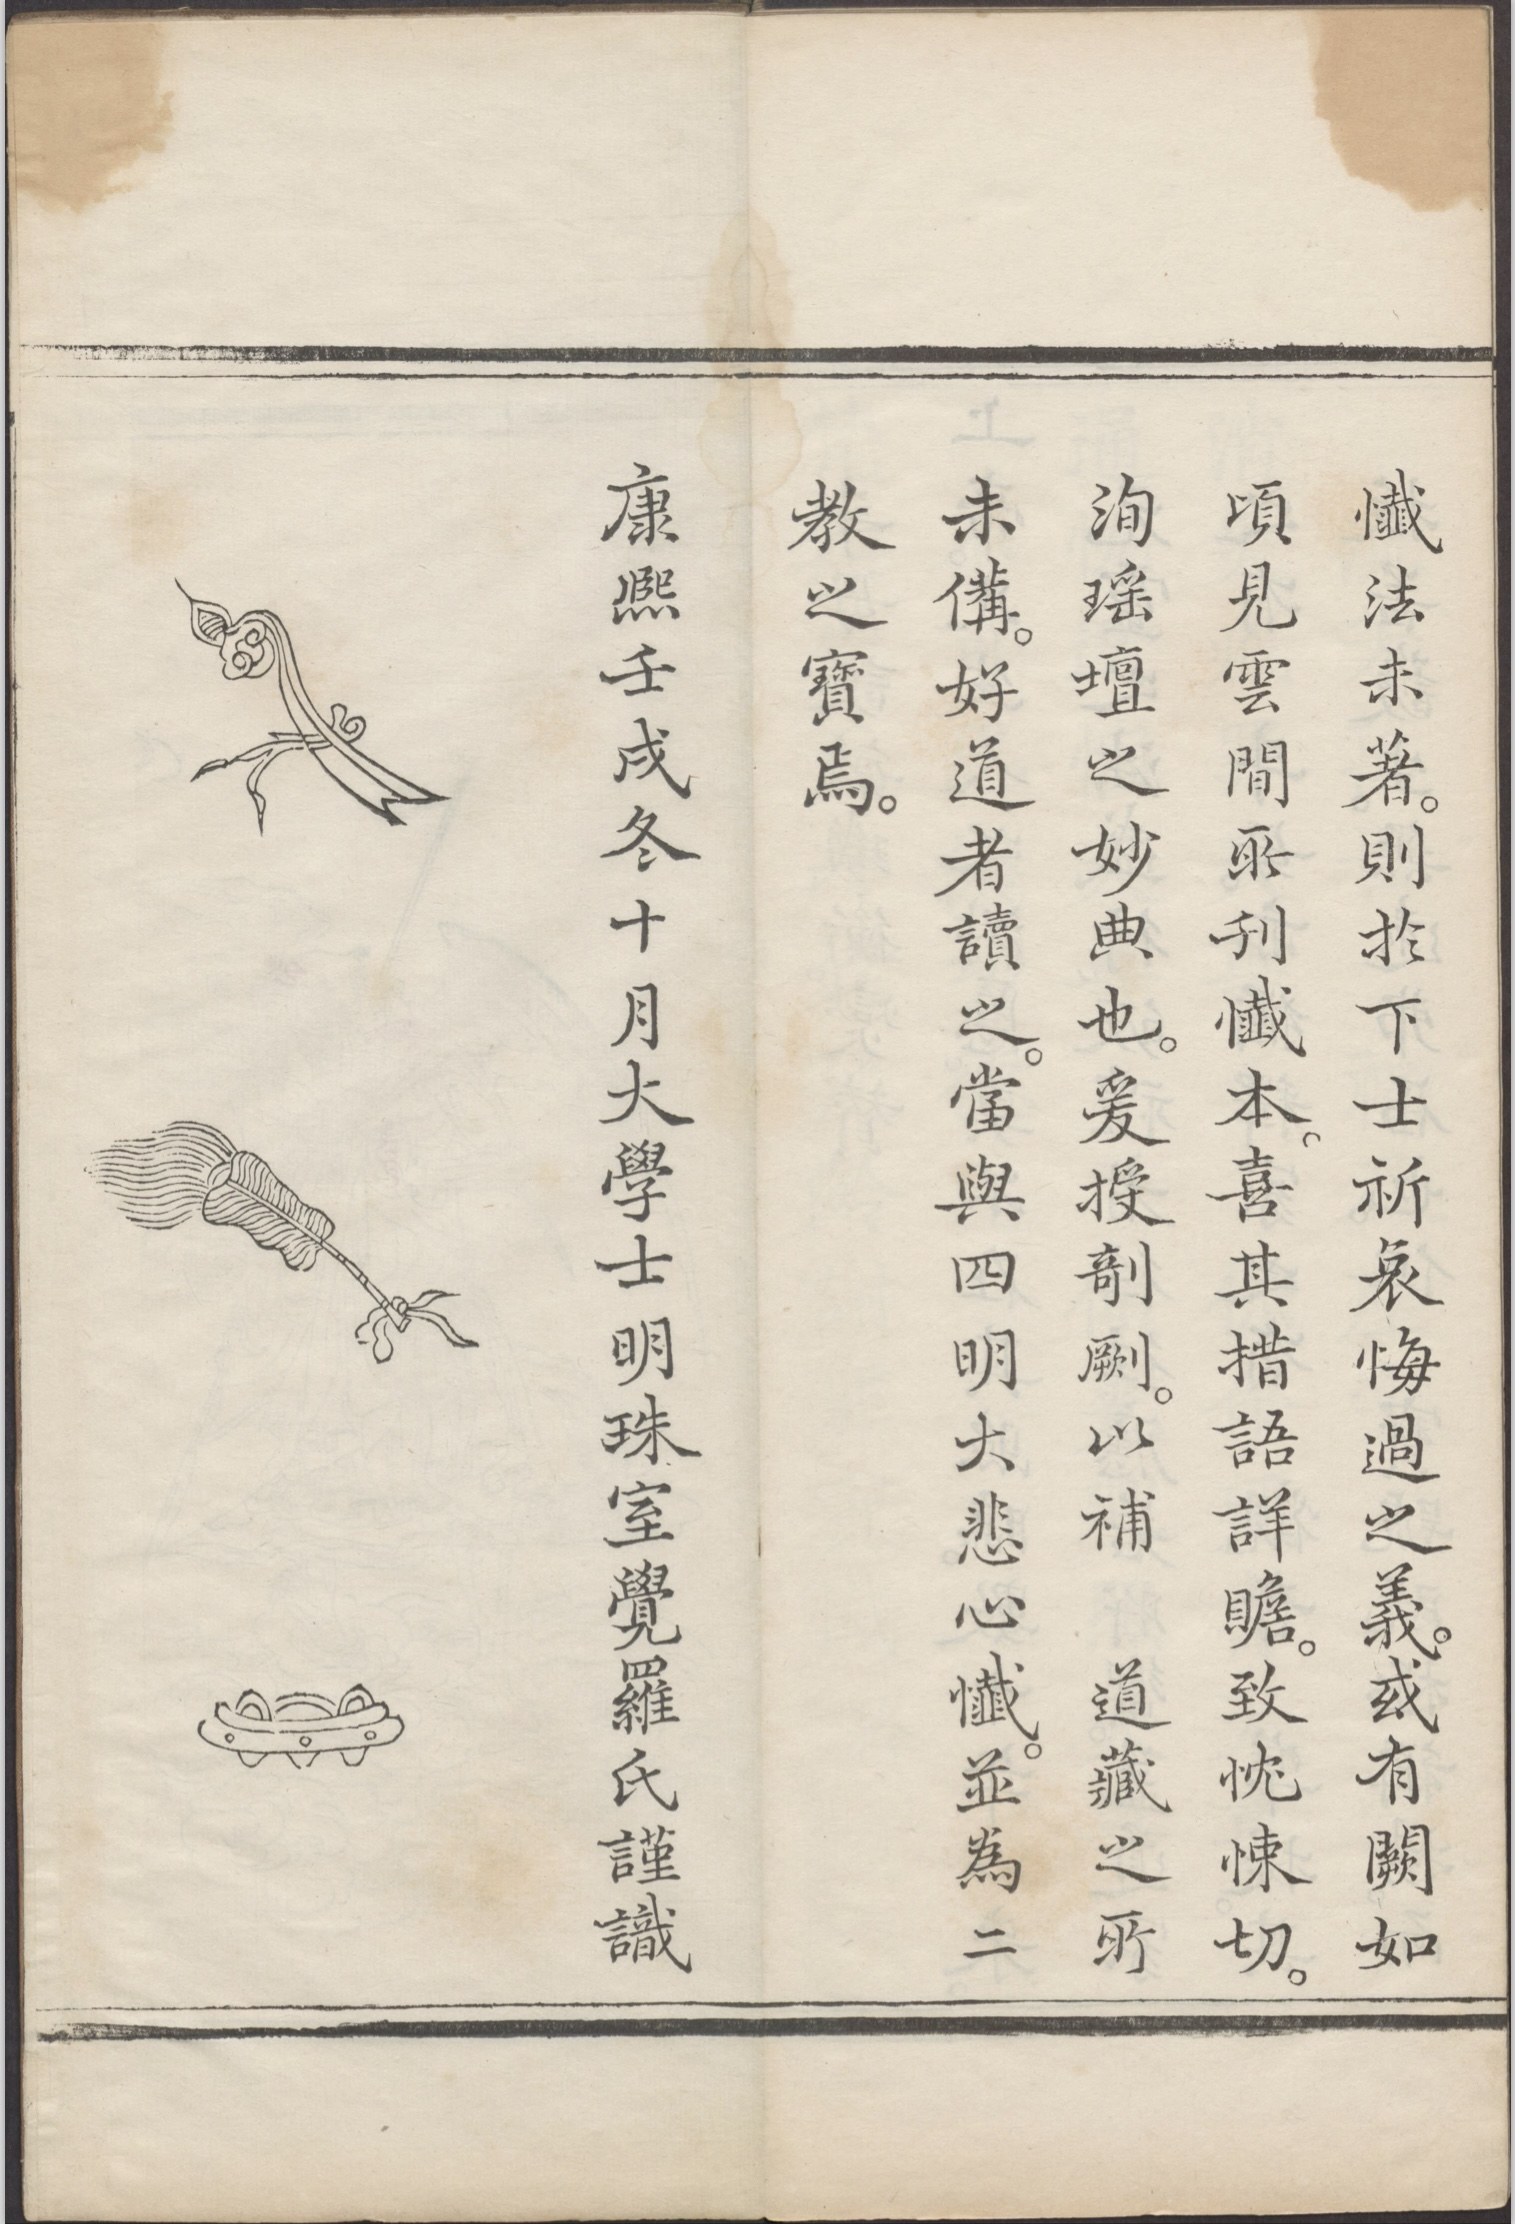 懺法未著。則於下士祈哀悔過之義。或有闕如
頃見雲間所刋懺本。喜其措語詳贍。致忱悚切。
洵瑶壇之妙典也。爰授剞劂。以補　道藏之所
未備。好道者讀之。當與四明大悲心懺。並為二
教之寶焉。
康熙壬戌冬十月大學士明珠室覺羅氏謹識